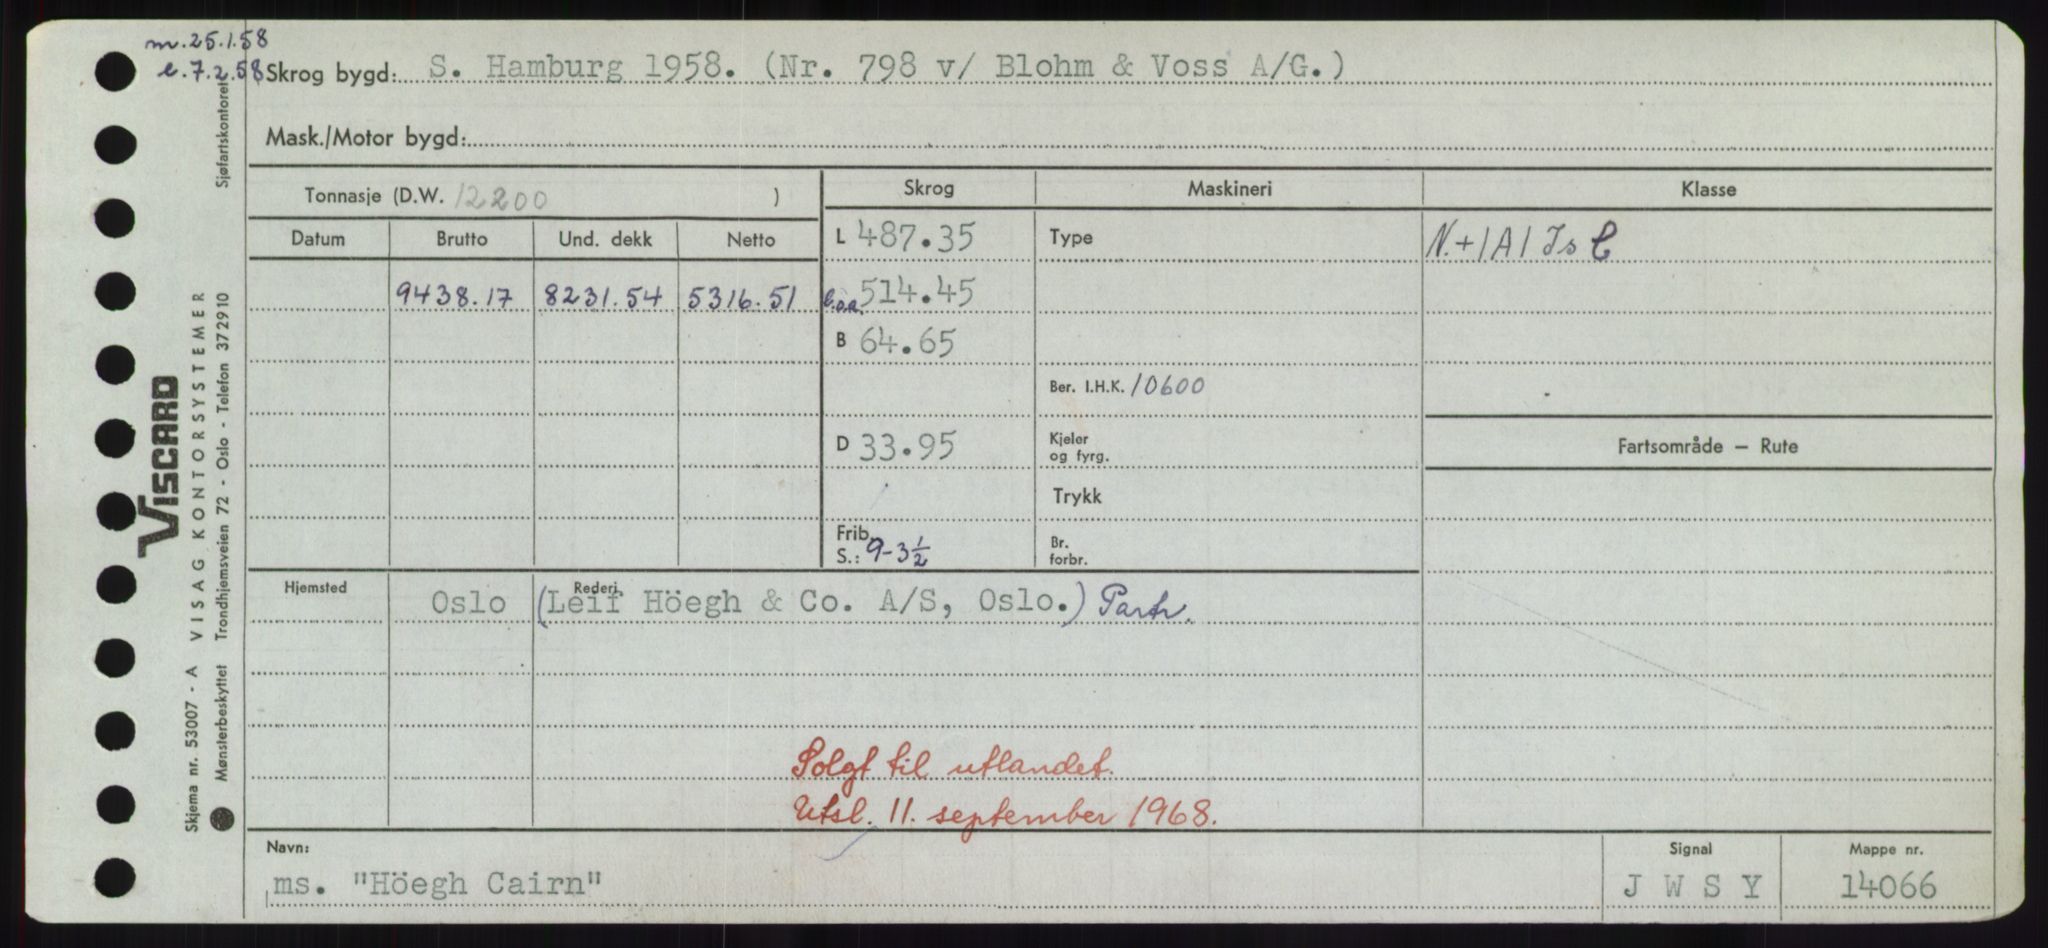 m. 25.1.58
e. 7.2.58
Skrog bygd: S. Hamburg 1958. (Nr. 798 v/ Blohm & Voss A/G.)
Mask./Motor bygd:
Tonnasje (D.W. 12200 )
Skrog Maskineri Klasse
Datum Brutto Und. dekk Netto
L 487.35 Type N.+1A1 Is C
9438.17 8231.54 5316.51 l.o.a. 514.45
B 64.65
Ber. I.H.K. 10600
D 33.95 Kjeler og fyrg. Fartsområde – Rute
Trykk
Frib. S.: 9-3½ Br. forbr.
Hjemsted Oslo Rederi (Leif Höegh & Co. A/S, Oslo.) Partr.
Solgt til utlandet.
Utsl. 11. september 1968.
Navn: Signal Mappe nr.
ms. "Höegh Cairn" J W S Y 14066
VISCARD
Skjema nr. 53007 - A VISAG KONTORSYSTEMER
Mønsterbeskyttet Trondhjemsveien 72 - Oslo - Telefon 372910 Sjøfartskontoret